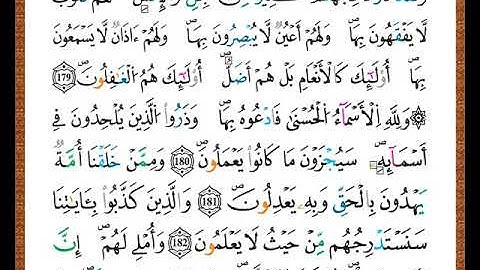 لَّا يَفۡقَهُونَ بِهَا وَلَهُمۡ أَعۡيُنٌ لَّا يُبۡصِرُونَ بِهَا وَلَهُمۡ ءَاذَانٌ لَّا يَسۡمَعُونَ
بِهَا أُوْلَٰٓئِكَ كَالۡأَنۡعَامِ بَلۡ هُمۡ أَضَلُّ أُوْلَٰٓئِكَ هُمُ الۡغَٰفِلُونَ 179
۞ وَلِلَّهِ الۡأَسۡمَآءُ الۡحُسۡنَىٰ فَادۡعُوهُ بِهَا وَذَرُواْ الَّذِينَ يُلۡحِدُونَ فِي
أَسۡمَٰٓئِهِۦ سَيُجۡزَوۡنَ مَا كَانُواْ يَعۡمَلُونَ 180 وَمِمَّنۡ خَلَقۡنَا أُمَّةٌ
يَهۡدُونَ بِالۡحَقِّ وَبِهِۦ يَعۡدِلُونَ 181 وَالَّذِينَ كَذَّبُواْ بِـَٔايَٰتِنَا
سَنَسۡتَدۡرِجُهُم مِّنۡ حَيۡثُ لَا يَعۡلَمُونَ 182 وَأُمۡلِي لَهُمۡ إِنَّ